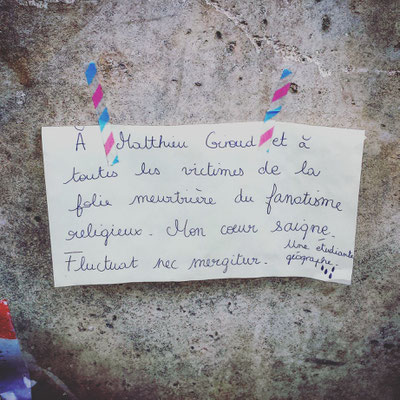 À Matthieu Giroud et à
toutes les victimes de la
folie meurtrière du fanatisme
religieux. Mon cœur saigne.
Fluctuat nec mergitur.
Une étudiante
géographe.